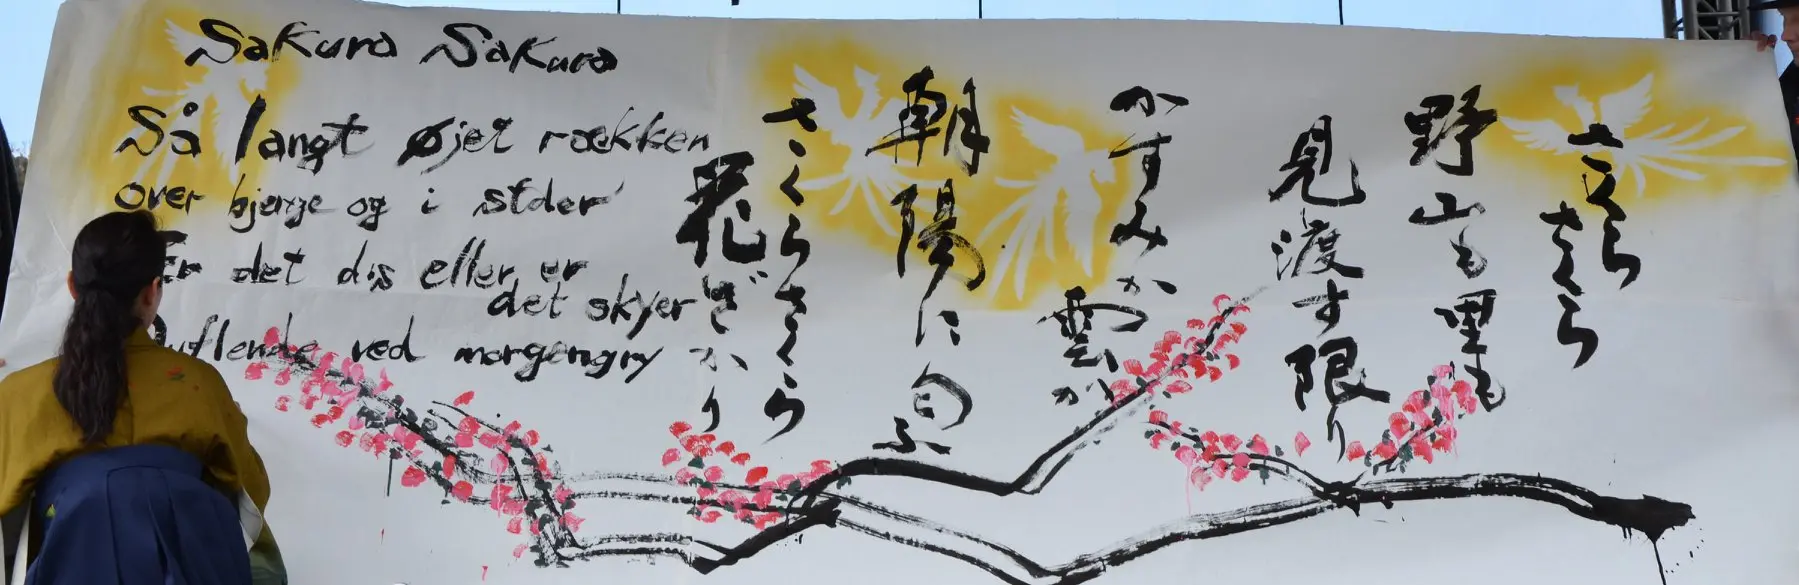 Sakura Sakura
Så langt øjet rækken
over bjerge og i stder
Er det dis eller er
det skyer
Duftende ved morgengry
さくら
さくら
野山も里も
見渡す限り
かすみか
雲か
朝陽に匂ふ
さくらさくら
花ざかり